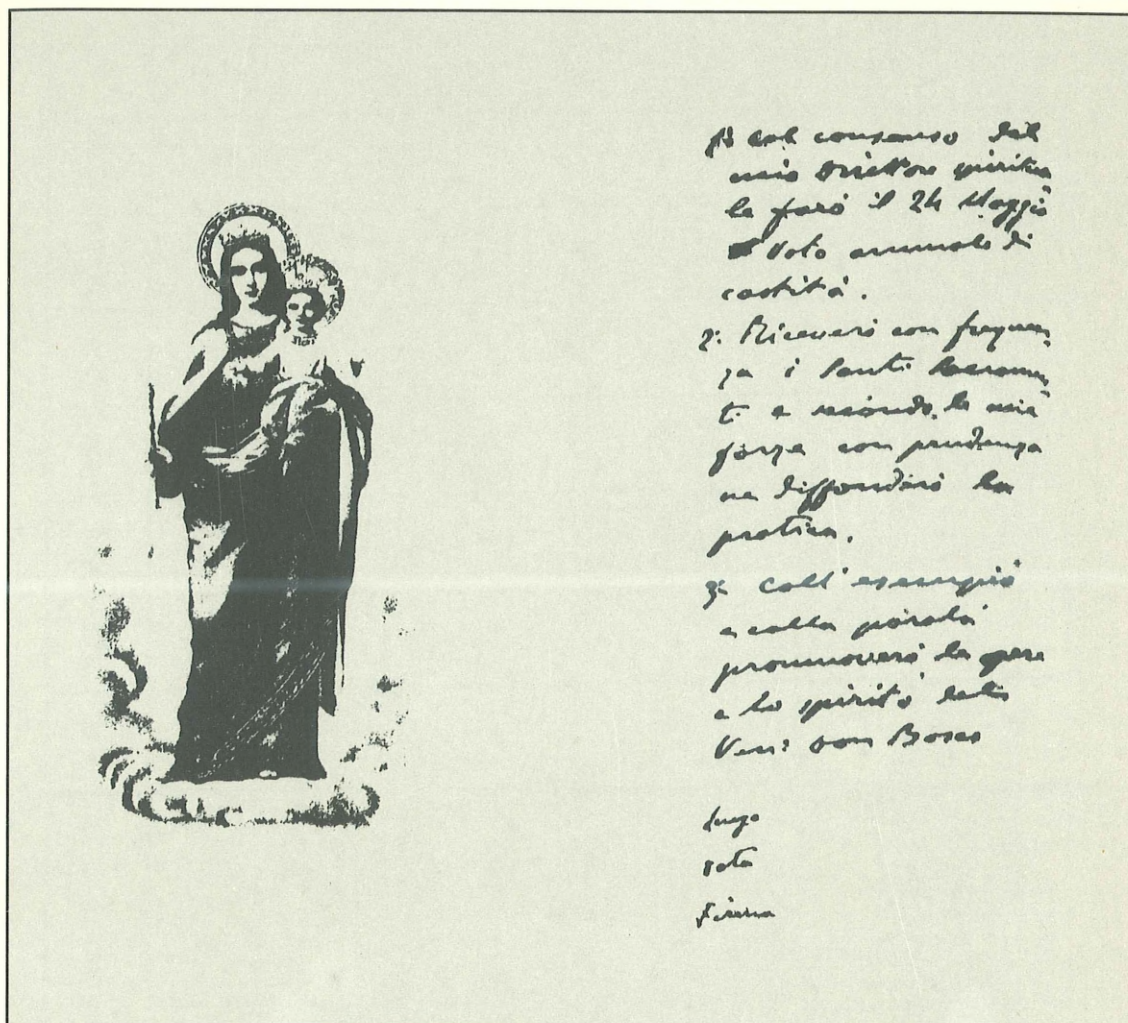 1º col consenso del
mio Direttore spiritua
le farò il 24 Maggio
Voto annuale di
castità.
2º Riceverò con frequen
za i Santi Sacramen
ti e secondo le mie
forze con prudenza
ne diffonderò la
pratica.
3º Coll'esempio
e colla parola
promuoverò le opere
e lo spirito del
Ven: Don Bosco
Luogo
Data
Firma